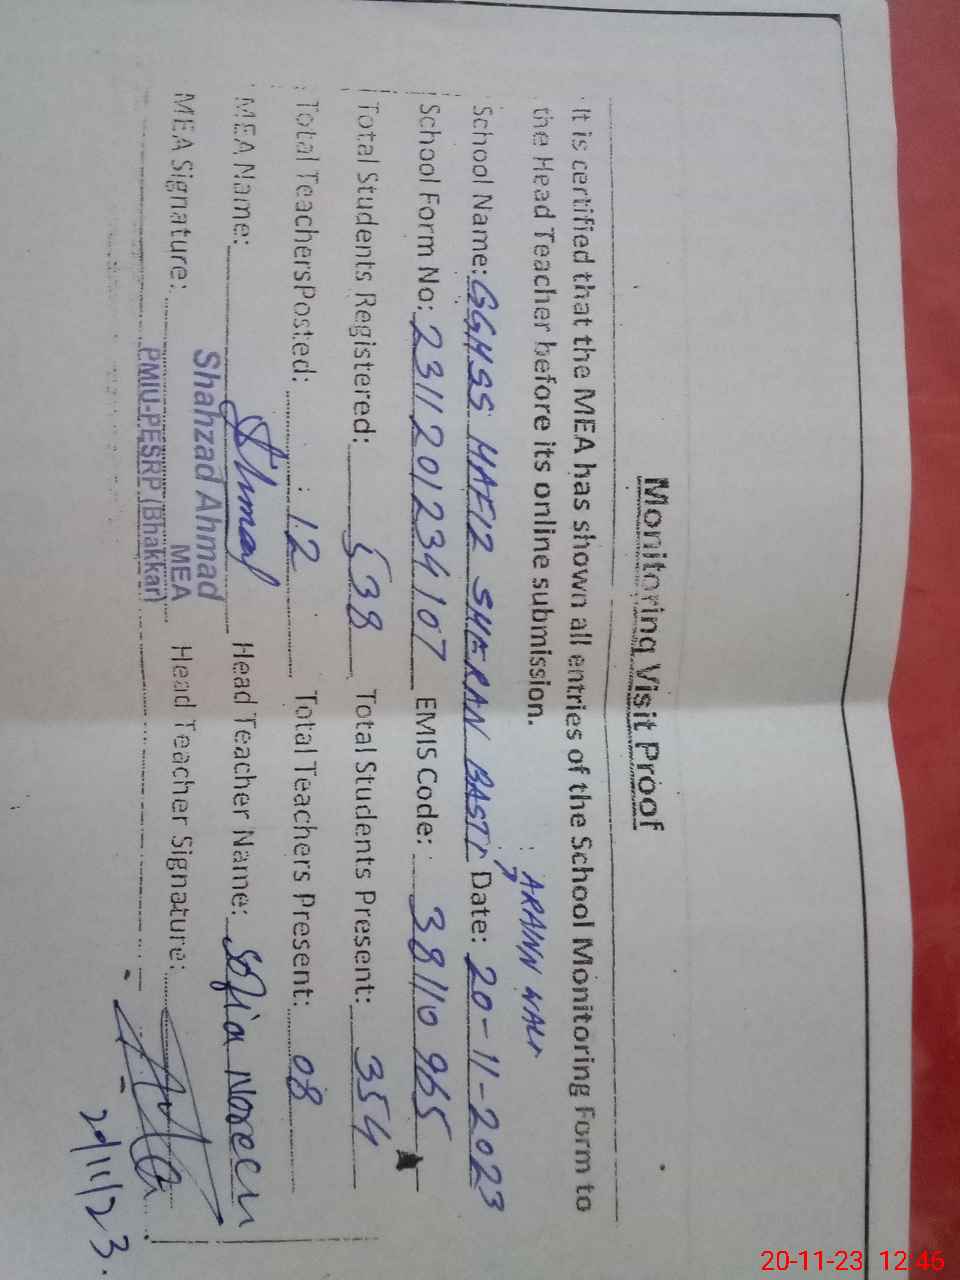 Monitoring Visit Proof
It is certified that the MEA has shown all entries of the School Monitoring Form to
the Head Teacher before its online submission.
ARAINN WALI
School Name: GGHSS HAFIZ SHERAN BASTI Date: 20-11-2023
School Form No: 2311201234107 EMIS Code: 38110965
Total Students Registered: 538 Total Students Present: 354
Total TeachersPosted: 12 Total Teachers Present: 08
MEA Name: Head Teacher Name: Sofia Noreen
Shahzad Ahmad
MEA
MEA Signature: Head Teacher Signature:
PMIU-PESRP (Bhakkar)
20/11/23.
20-11-23 12:46